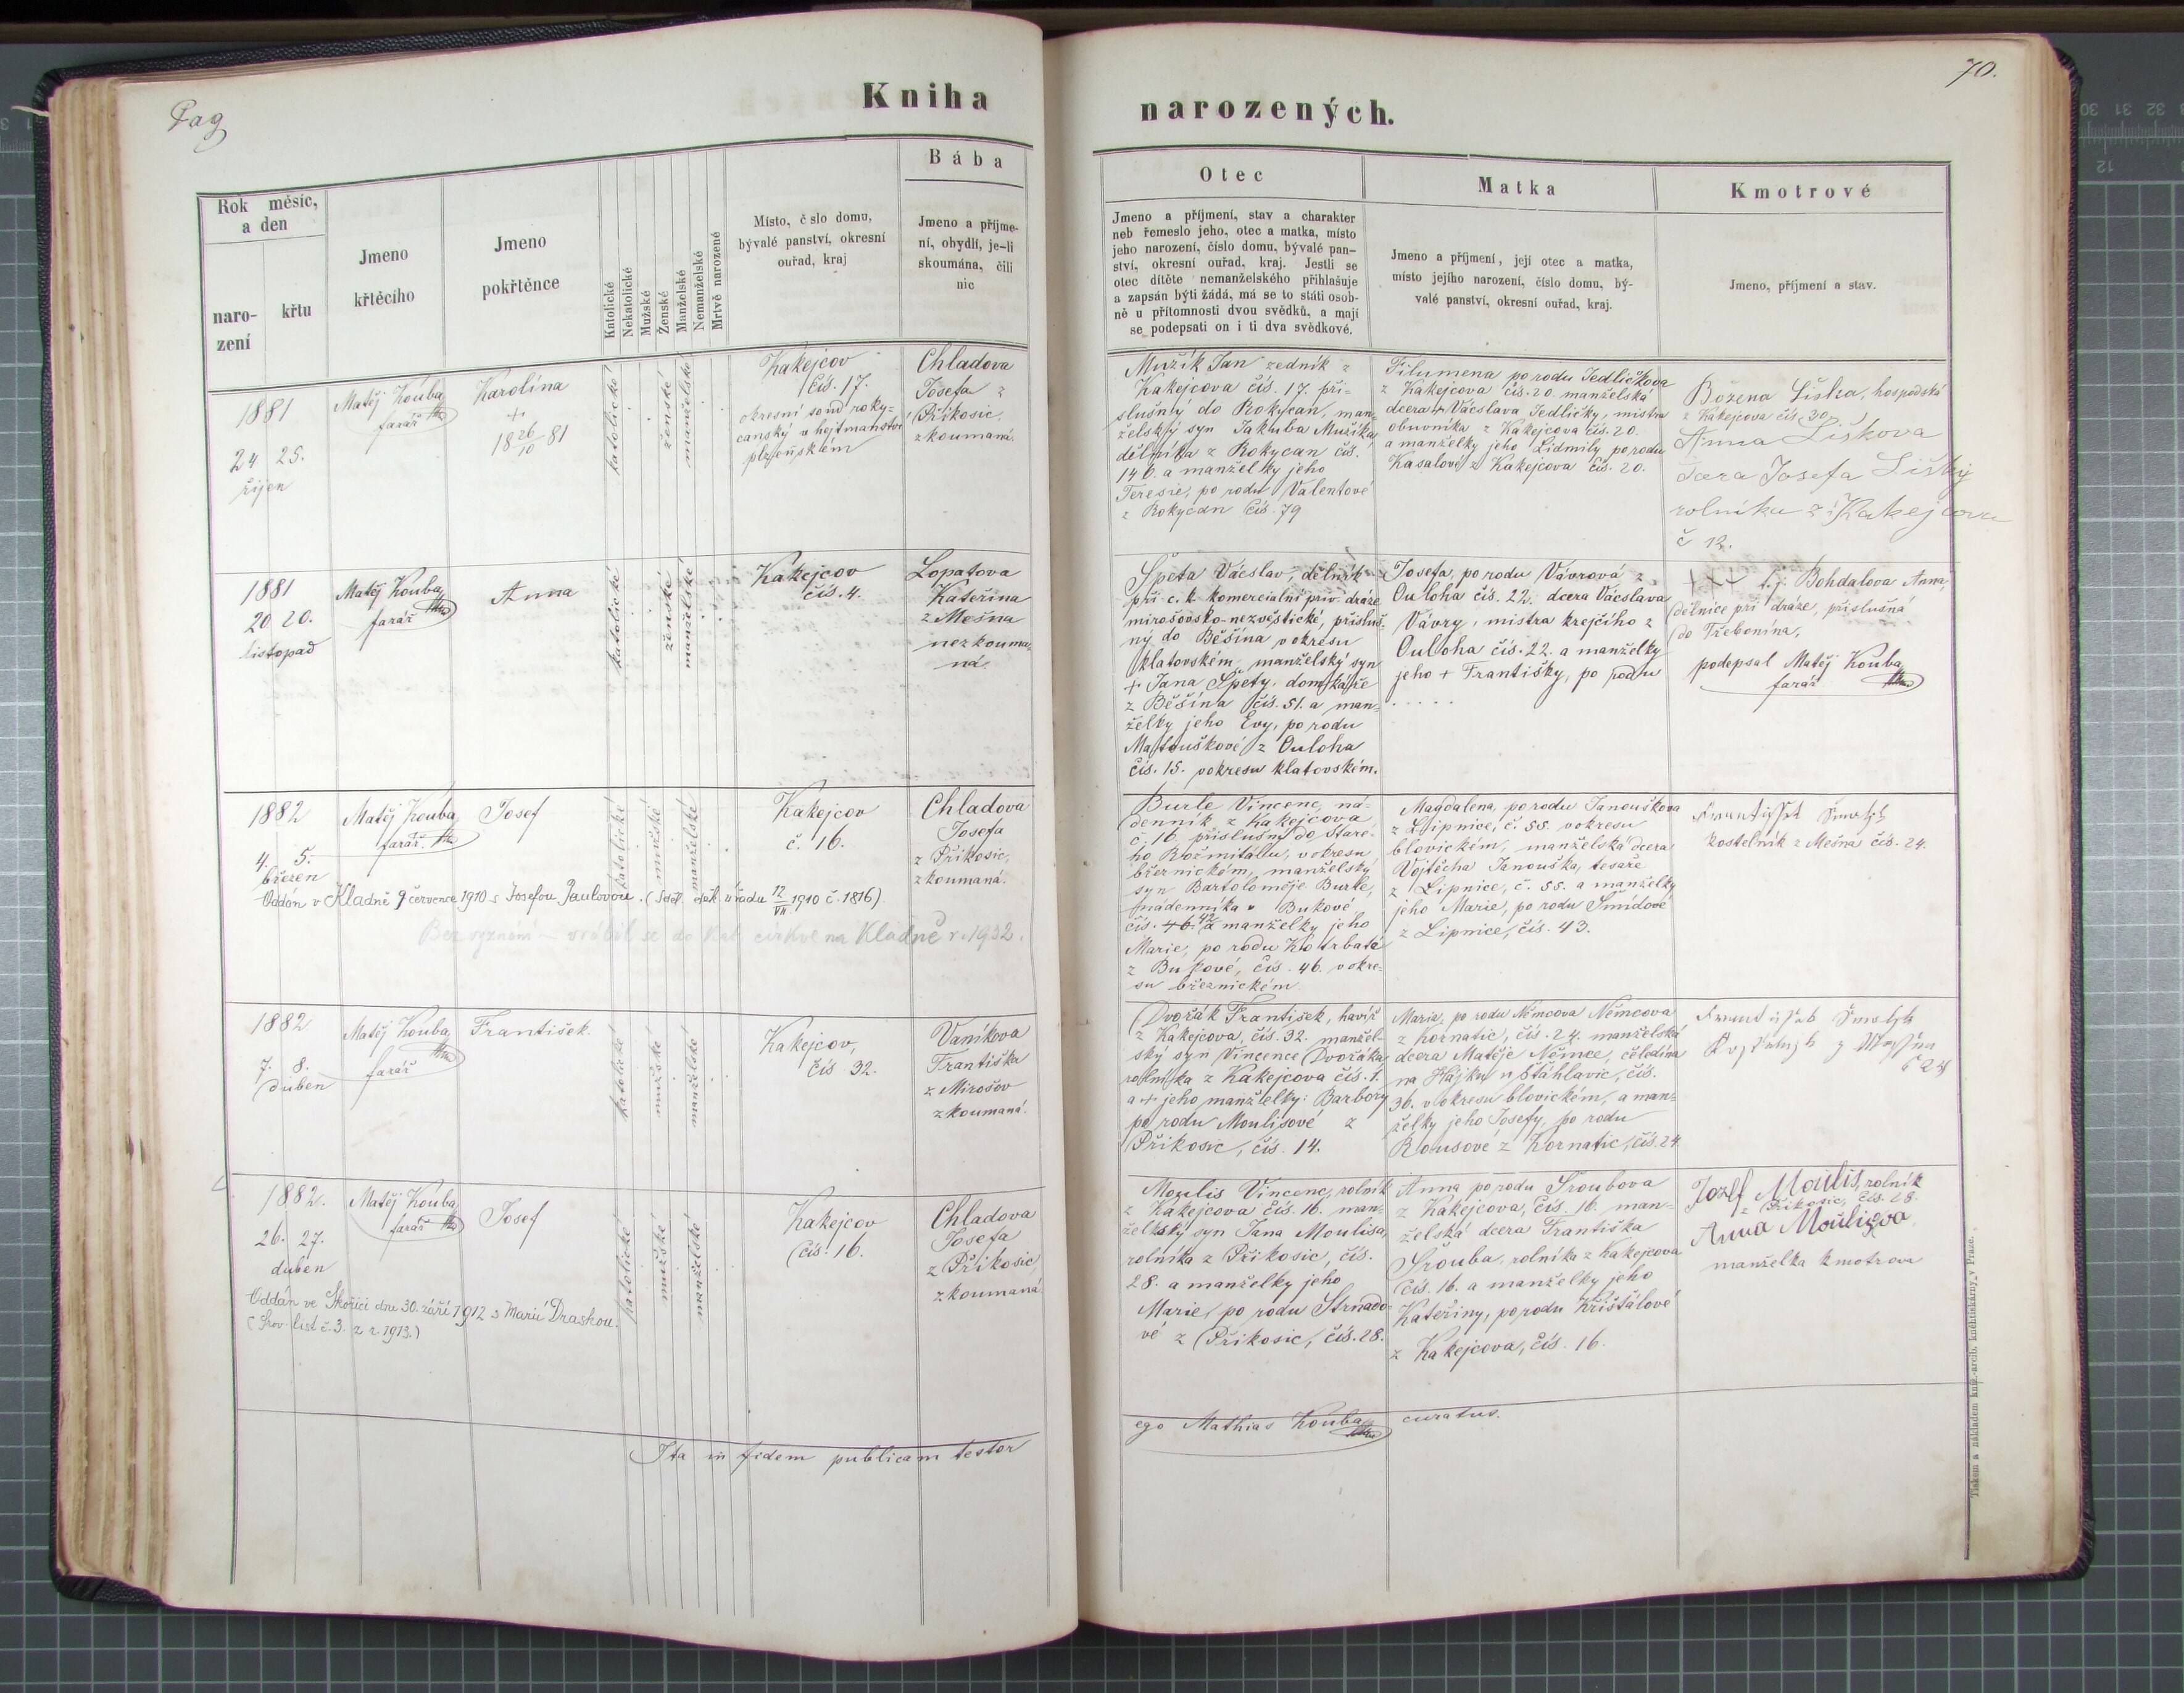 Pag
Kniha
narozených.
70.
Rok měsíc,
a den
naro-
zení
křtu
Jmeno
křtěcího
Jmeno
pokřtěnce
Katolické
Nekatolické
Mužské
Ženské
Manželské
Nemanželské
Mrtvě narozené
Místo, č slo domu,
bývalé panství, okresní
ouřad, kraj
Bába
Jmeno a příjme-
ní, obydlí, je-li
skoumána, čili
nic
Otec
Jmeno a příjmení, stav a charakter
neb řemeslo jeho, otec a matka, místo
jeho narození, číslo domu, bývalé pan-
ství, okresní ouřad, kraj. Jestli se
otec dítěte nemanželského přihlašuje
a zapsán býti žádá, má se to státi osob-
ně u přítomnosti dvou svědků, a mají
se podepsati on i ti dva svědkové.
Matka
Jmeno a příjmení, její otec a matka,
místo jejího narození, číslo domu, bý-
valé panství, okresní ouřad, kraj.
Kmotrové
Jmeno, příjmení a stav.
1881
24 25.
říjen
Matěj Kouba
farář
Karolina
+
18 26/10 81
katolické
ženské
manželské
Kakejcov
čís. 17.
okresní soud roky-
canský v hejtmanství
plzeňském
Chladova
Josefa z
Příkosic.
zkoumaná.
Mužík Jan zedník z
Kakejcova čís. 17. pří-
slušný do Rokycan, man-
želský syn Jakuba Mužíka,
dělníka z Rokycan čís.
140. a manželky jeho
Teresie, po rodu Valentové
z Rokycan čís. 79
Filumena po rodu Jedličkova
z Kakejcova čís. 20. manželská
dcera + Vácslava Jedličky, mistra
obuvníka z Kakejcova čís. 20.
a manželky jeho Lidmily po rodu
Kasalové z Kakejcova čís. 20.
Božena Liška, hospodská
z Kakejcova čís. 30
Anna Liškova
Josefa Lišky
rolníka z Kakejcova
č 12.
1881
20 20.
listopad
Matěj Kouba
farář
Anna
katolické
ženské
manželské
Kakejcov
čís. 4.
Lopatova
Kateřina
z Mešna
nezkouma-
ná.
Špeta Vácslav, dělník
při c. k. komercialní priv. dráze
mirošovsko-nezvěstické, přísluš-
ný do Běšína v okresu
klatovském, manželský syn
+ Jana Špety, domkáře
z Běšína čís. 51. a man-
želky jeho Evy, po rodu
Matouškové z Ouloha
čís. 15. v okresu klatovském.
Josefa, po rodu Vávrová z
Ouloha čís. 22. dcera Vácslava
Vávry, mistra krejčího z
Ouloha čís. 22. a manželky
jeho + Františky, po rodu
. . . . .
+++ t. j. Bohdalova Anna,
dělnice při dráze, příslušná
do Třebonína,
podepsal Matěj Kouba
farář
1882
4. 5.
březen
Matěj Kouba
farář.
Josef
katolické
mužské
manželské
Kakejcov
č. 16.
Chladova
Josefa
z Příkosic,
zkoumaná.
Oddán v Kladně 9 července 1910 s Josefou Paulovou. (Sděl. úřadu 12/VII 1910 č. 1816).
Bez vyznání – vrátil se do kat. církve na Kladně r. 1932.
Burle Vincenc, ná-
denník z Kakejcova,
č. 16. příslušný do Staré-
ho Rožmitálu, v okresu
březnickém, manželský
syn Bartoloměje Burle,
nádenníka v Bukové
čís. 42 a manželky jeho
Marie, po rodu Kotrbaté
z Bukové, čís. 46. v okre-
su březnickém
Magdalena, po rodu Janouškova
z Lipnice, č. 55. v okresu
blovickém, manželská dcera
Vojtěcha Janouška, tesaře
z Lipnice, č. 55. a manželky
jeho Marie, po rodu Šmídové
z Lipnice, čís. 43.
kostelník z Mešna čís. 24.
1882
7. 8.
duben
Matěj Kouba
farář
František.
katolické
mužské
manželské
Kakejcov,
čís 32.
Vaníkova
Františka
z Mirošov
zkoumaná.
Dvořák František, havíř
z Kakejcova, čís. 32. manžel-
ský syn Vincence Dvořáka
rolníka z Kakejcova čís. 1.
a + jeho manželky: Barbory
po rodu Moulisové z
Příkosic, čís. 14.
Marie, po rodu Němcova Němcova
z Kornatic, čís. 24. manželská
dcera Matěje Němce, čeledína
na Hájku u Šťáhlavic, čís.
36. v okresu blovickém, a man-
želky jeho Josefy, po rodu
Rousové z Kornatic, čís. 24
č 24
1882.
26. 27.
duben
Matěj Kouba
farář
Josef
katolické
mužské
manželské
Kakejcov
čís. 16.
Chladova
Josefa
z Příkosic
zkoumaná
Oddán ve Skořici dne 30. září 1912 s Marií Draskou.
(Srov. list č. 3. z r. 1913.)
Moulis Vincenc, rolník
z Kakejcova čís. 16. man-
želský syn Jana Moulisa,
rolníka z Příkosic, čís.
28. a manželky jeho
Marie, po rodu Strnado-
vé z Příkosic, čís. 28.
Anna po rodu Šroubova
z Kakejcova, čís. 16. man-
želská dcera Františka
Šrouba, rolníka z Kakejcova
čís. 16. a manželky jeho
Kateřiny, po rodu Křišťálové
z Kakejcova, čís. 16.
Jozef Moulis, rolník
z Příkosic, čís. 28.
Anna Moulisova
manželka kmotrova
Ita in fidem publicam testor
ego Mathias Kouba curatus.
Tiskem a nákladem kníž.-arcib. kněhtiskárny v Praze.